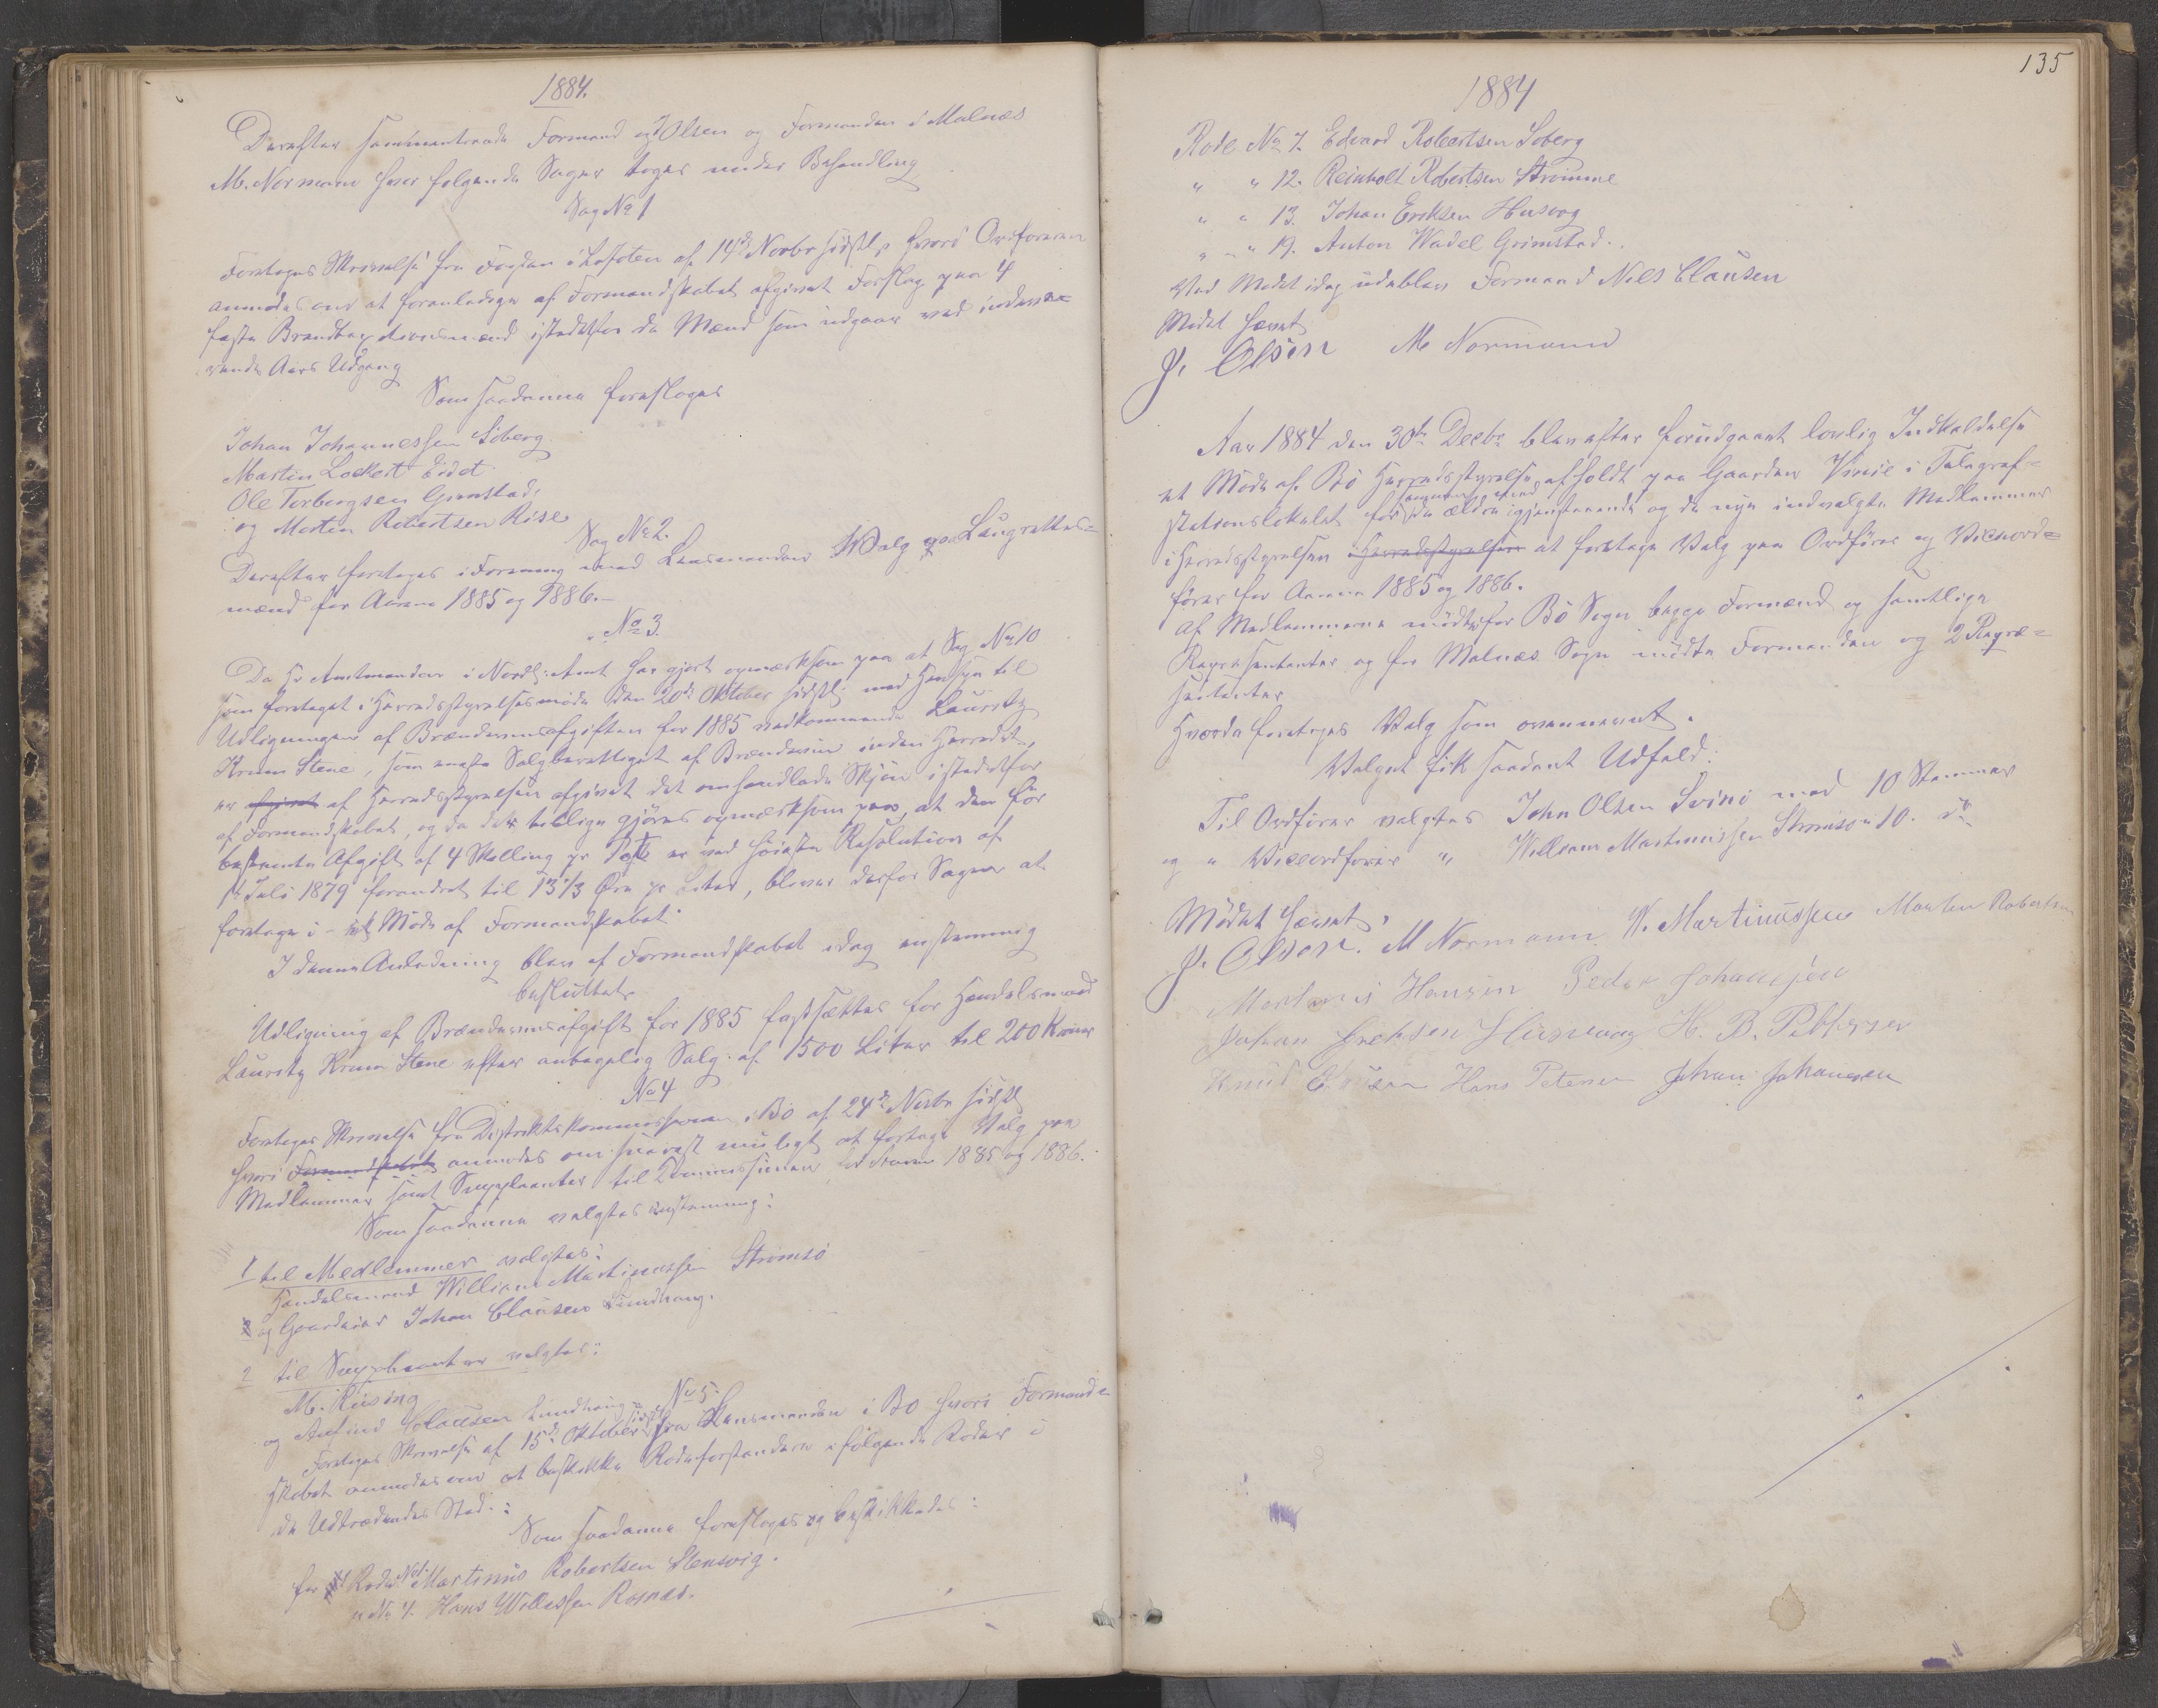 1884.
Derefter sammentraadte Formand og Olsen og Formanden i Malnæs
M. Normann hvor følgende Sager toges under Behandling
Sag No 1
Foretoges Skrivelse fra Fogden i Lofoten af 14de Novbr sidstl. hvori Ordføreren
anmodes om at foranledige af Formandskabet afgivet Forslag paa 4
faste Brandtaxationsmænd istedetfor de Mænd som udgaar ved indeva=
rende Aars Udgang
Som saadanne foresloges
Johan Johannessen Söberg
Martin Lockert Eidet
Ole Torbergsen Grimstad,
og Morten Robertsen Rise
Sag No 2.
Derefter foretoges i Forening med Lensmanden Valg paa Laugrettes=
mænd for Aarene 1885 og 1886.-
No 3.
Da Hr Amtmanden i Nordl: Amt har gjort opmærksom paa at Sag No 10
som foretaget i Herredsstyrelsesmøde den 20de Oktober sidstl: med Hensyn til
Udligningen af Brændevinsafgiften for 1885 vedkommende Lauritz
Krum Stene, som eneste Salgberettiget af Brændevin inden Herredet,
er afgivet af Herredsstyrelsen afgivet det omhandlede Skjøn istedetfor
af Formandskabet, og da der tillige gjøres opmærksom paa, at den før
bestemte Afgift af 4 Skilling pr Pot er ved høieste Resolution af
1st Juli 1879 forandret til 13 1/3 Øre pr Liter, bliver derfor Sagen at
foretage i et Møde af Formandskabet.
I denne Anledning blev af Formandskabet idag enstemmig
besluttet
Udligning af Brændevinsafgift for 1885 fastsættes for Handelsmand
Lauritz Krum Stene efter antagelig Salg af 1500 Liter til 200 Kroner
No 4
Foretoges Skrivelse fra Distriktskommissionen i Bö af 24de Novbr sidstl
hvori Formandskabet anmodes om snarest muligt at foretage Valg paa
Medlemmer samt Suppleanter til Kommissionen for Aarene 1885 og 1886.
Som saadanne valgtes enstemmig:
1 til Medlemmer valgtes:
Handelsmand William Martinussen Strömsö
og Gaardeier Johan Clausen Lundhaug.
2 til Suppleanter valgtes:
M. Rüsing
og Clausen Lundhaug
No 5.
Foretoges Skrivelse af 15de Oktober sidstl fra Lensmanden i Bö hvori Formand=
skabet anmodes om at beskikke Rodeforstandere i følgende Roder i
de Udtrædendes Sted:
Som saadanne foresloges og beskikkedes:
for Rode No 1. Martinus Robertsen Steensvig.
" No 4. Hans Willassen Rosnæs.
135
1884
Rode No 7. Edvard Robertsen Soberg
" " 12. Reinholt Robertsen Strömme
" " 13. Johan Eriksen Husvog
" " 19. Anton Wadel Grimstad.
Ved Mødet idag udeblev Formand Nils Clausen
Mødet hævet
J. Olsen M Normann
Aar 1884 den 30te Decbr blev efter forudgaaet lovlig Indkaldelse
et Møde af Bö Herredsstyrelse afholdt paa Gaarden Vinje i Telegraf=
stationslokalet for sammen med de ældre igjenstaaende og de nye indvalgte Medlemmer
i Herredsstyrelsen i Herredsstyrelsen at foretage Valg paa Ordfører og Viceord=
fører for Aarene 1885 og 1886.
Af Medlemmerne mødte for Bö Sogn begge Formænd og samtlige
Repræsentanter og for Malnæs Sogn mødte Formanden og 2 Repræ=
sentanter
Hvorda foretoges Valg som ovennævnt.
Valget fik saadant Udfald:
Til Ordfører valgtes John Olsen Svinö med 10 Stemmer
og " Viceordfører " William Martinussen Strömsö " 10. do
Mødet hævet,
J. Olsen. M Normann W. Martinussen Morten Robertsen
Martinus Hansen Peder Johansen
Johan Erichsen Husvaag H. B. Pettersen
Knud Hans Petersen Johan Johansen